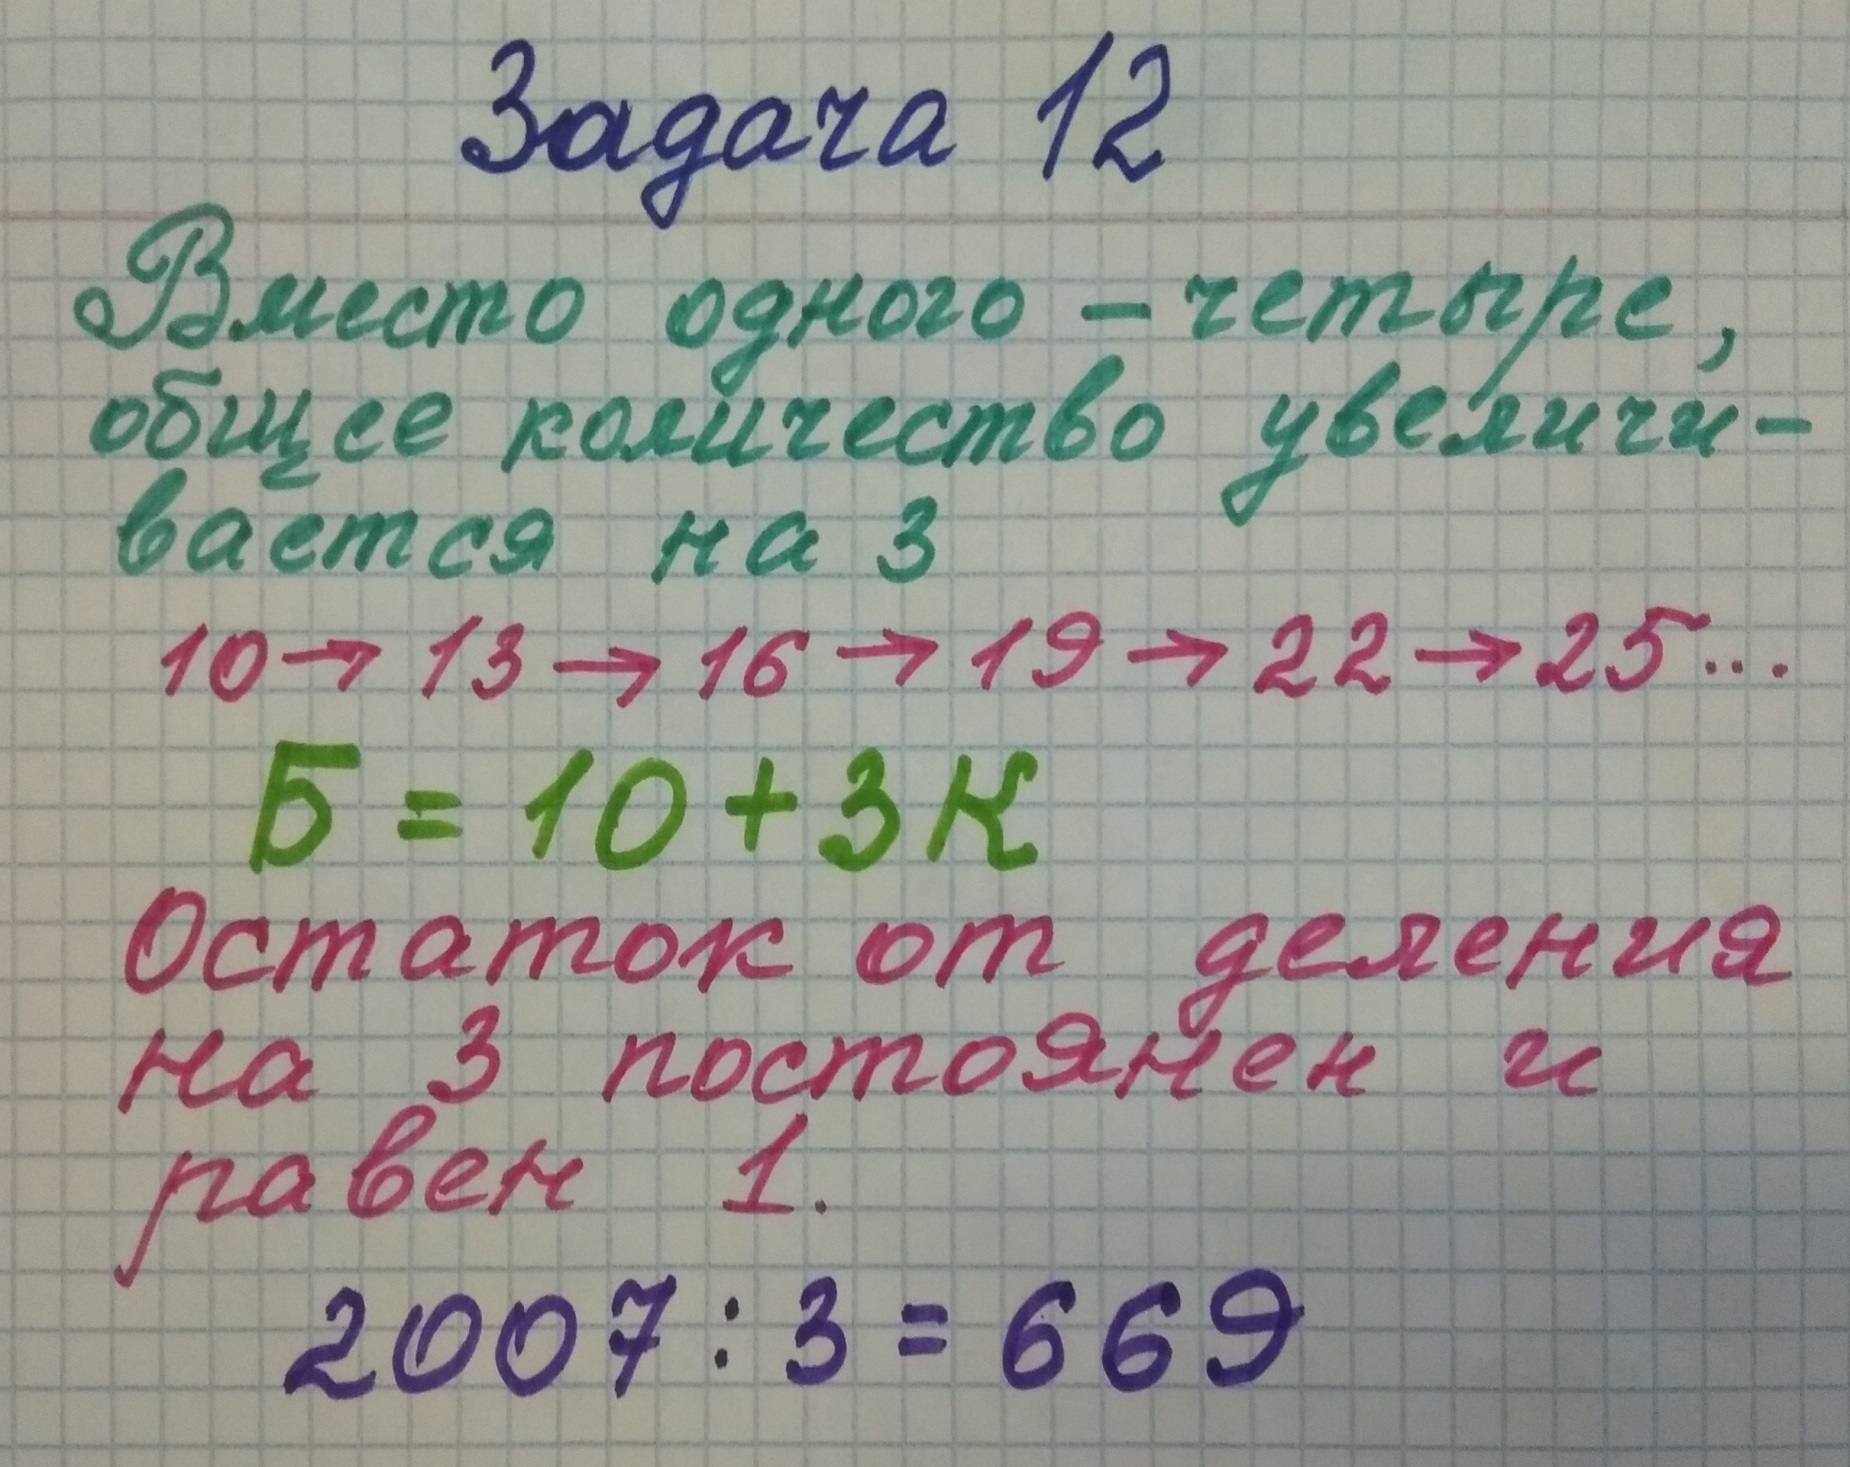 Задача 12
Вместо одного - четыре,
общее количество увеличи-
вается на 3
10 → 13 → 16 → 19 → 22 → 25...
Б = 10 + 3К
Остаток от деления
на 3 постоянен и
равен 1.
2007 : 3 = 669